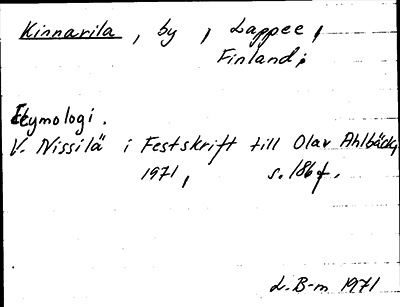 Kinnarila, by, Lappee,
Finland;
Etymologi.
V. Nissilä i Festskrift till Olav Ahlbäck,
1971, s. 186f.
L. B-m 1971